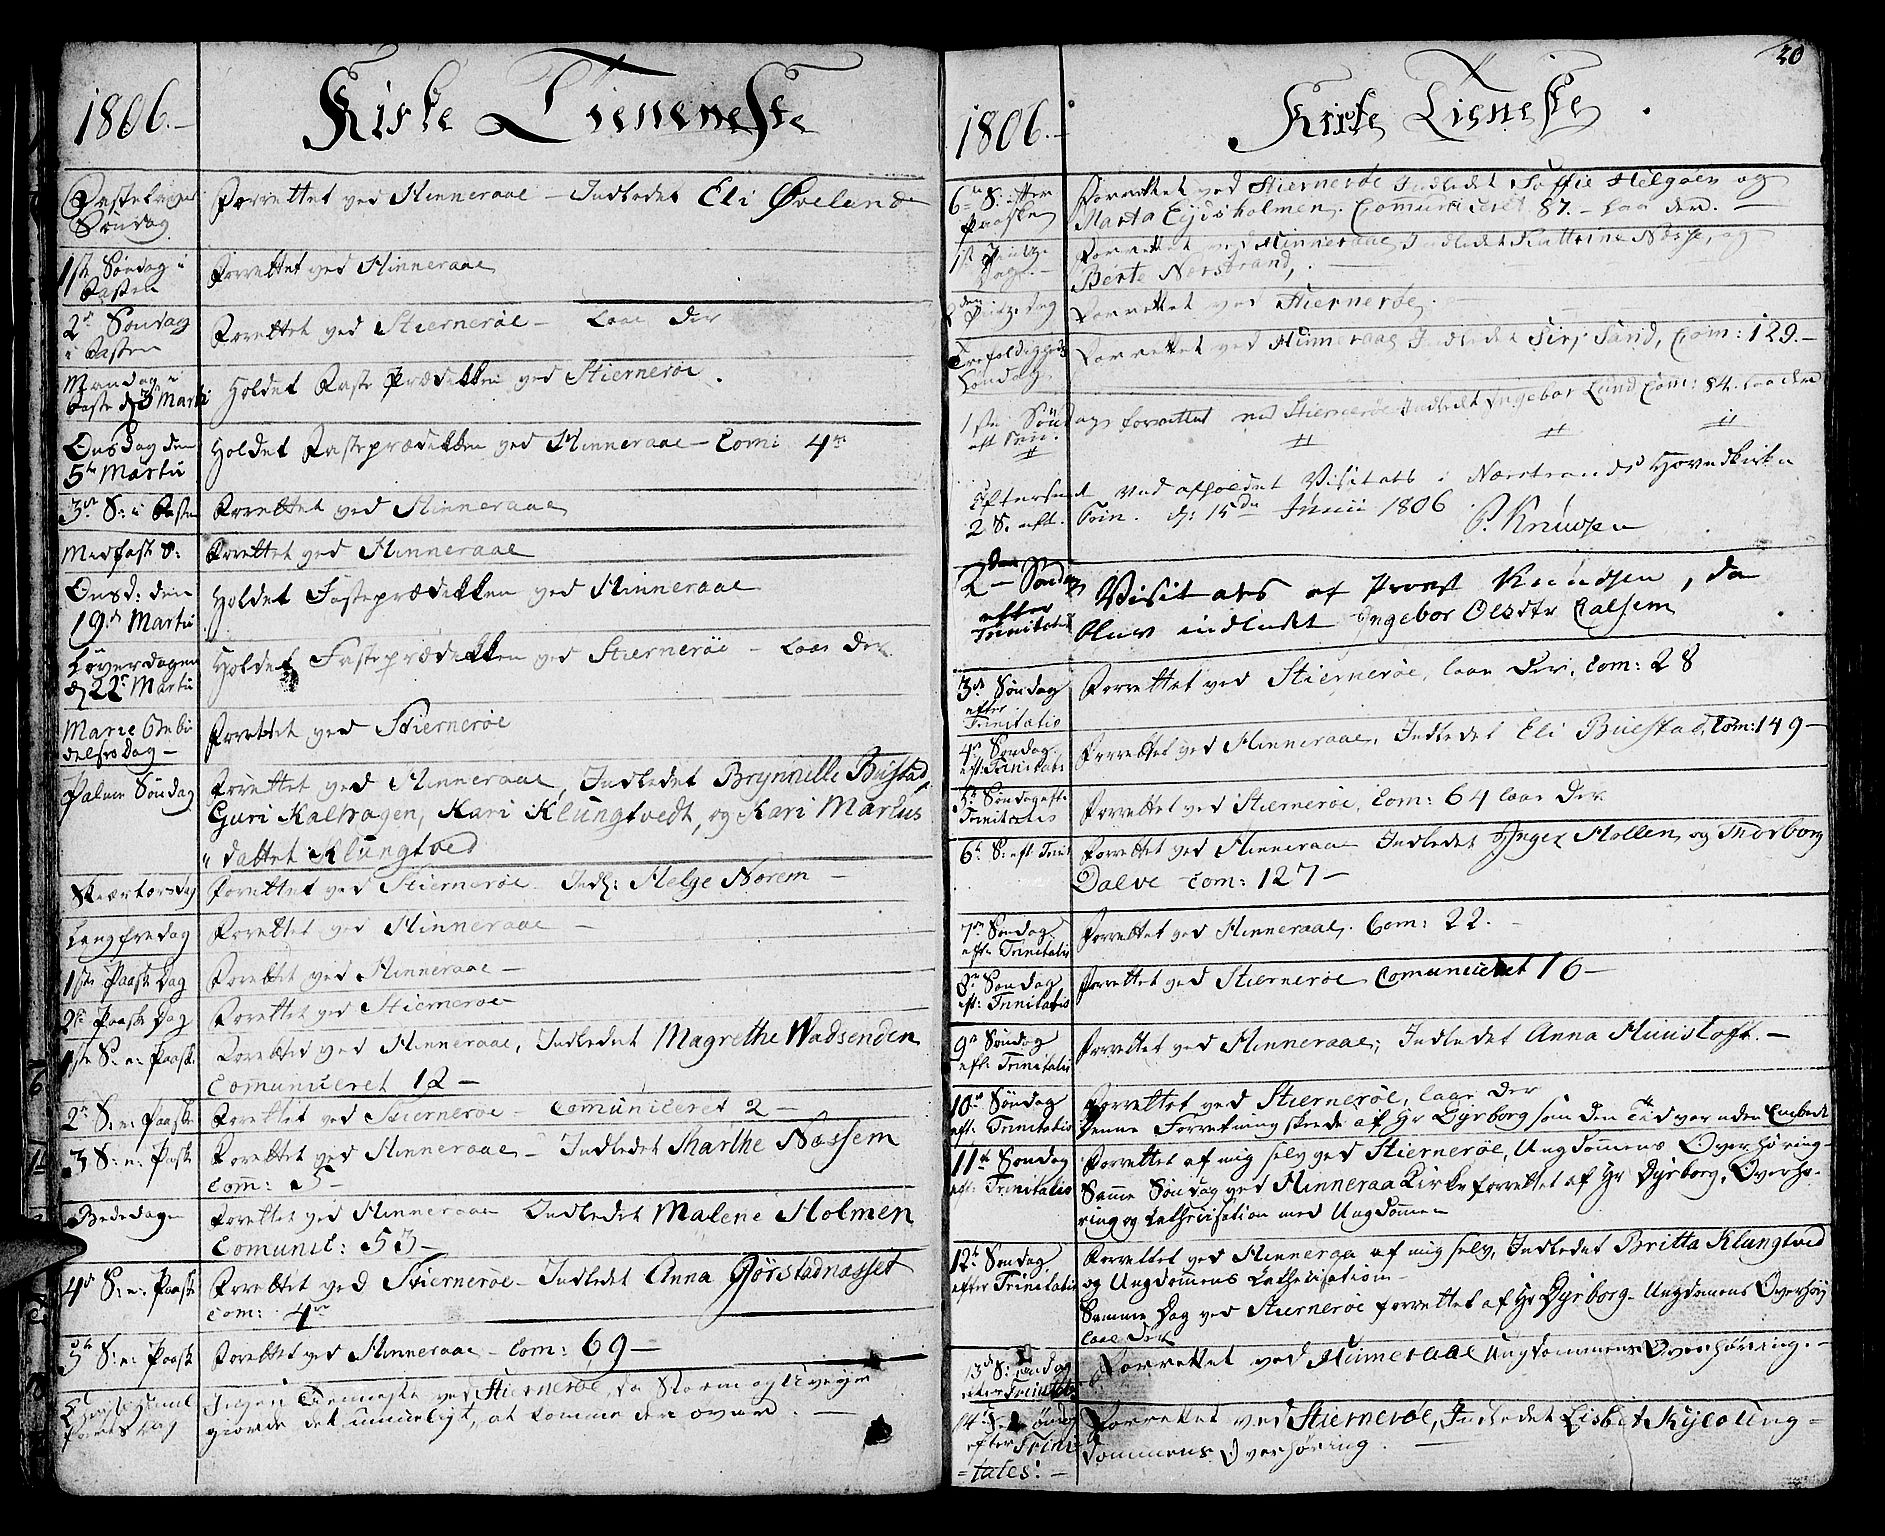 1806.-
Kirke Tienneste
Fastelavns Søndag
Forrettet ved Hinneraae - Indledet Eli Øveland
1ste Søndag i Fasten
Forrettet ved Hinneraae
2den Søndag i Fasten
Forrettet ved Stiernerøe - laae der
Mandag i Faste d 3 Marti
Holdet Faste Prædikken ved Stiernerøe.
Onsdag den 5te Martii
Holdet Fasteprædikken ved Hinneraae - Comi 4re
3die S: i Faste
Forrettet ved Hinneraae
Midfaste S:
Forrettet ved Hinneraae
Onsd: den 19de Martii
Holdet Fasteprædikken ved Hinneraae
Løverdagen d 22de Martii
Holdet Fasteprædikken ved Stiernerøe - laae der
Marie Bebudelses Dag -
Forrettet ved Stiernerøe
Palme Søndag
Forrettet ved Hinneraae, Indledet Brynnille Buestad,
Guri Kalhagen, Kari Klungtvedt, og Kari Martus
" dattet Klungtved
Skiærtorsdag
Forrettet ved Stiernerøe - Indl: Helge Norem -
Langfredag
Forrettet ved Hinneraae -
1ste Paaske Dag
Forrettet ved Hinneraae -
2de Paaske Dag
Forrettet ved Stiernerøe
1ste S. e: Paaske
Forrettet ved Hinneraae, Indledet Magrethe Wadsenden
Comuniceret 12 -
2den S: e: Paaske
Forrettet ved Stiernerøe - Comuniceret 2 -
3 S: e: Paaske
Forrettet ved Hinneraae - Indledet Marthe Nassem
Com: 5 -
Bededagen
Forrettet ved Hinneraae Indledet Malene Holmen
Comunic: 53 -
4de S: e: Paaske
Forrettet ved Stiernerøe - Indledet Anna Gjørstadnæsset
Com: 4re
5te S: e: Paaske
Forrettet ved Hinneraae - Com: 69 -
Christi Himmelfartsdag
Ingen Tienneste ved Stiernerøe, da Storm og Uveyr
giorde det umueligt, at komme der over. -
20
1806.-
Kirke Tieneste
6te S: efter Paaske
Forrettet ved Stiernerøe Indledet Saffie Helgøen og
Marta Eydsholmen. Comuniceret 87. - laae der. -
1ste Pintze Dag. -
Forrettet ved Hinneraae Indledet Kattrine Næsse, og
Berte Nerstrand,
2den Pintzedag
Forrettet ved Stiernerøe. -
Trefoldigheds Søndag
Forrettet ved Hinneraae Indledet Siri Sand, Com: 129. -
1ste Søndag eft Trin.
forrettet ved Stiernerøe Indledet Ingebor Lund Com: 84. laae der
Efterseet ved afholdet Visitats i Nærstrands Hovedkirke
2 S. eft. Trin. d: 15de Junii 1806 P. Knudsen
2den Søndag efter Trinitatis
Visitats af Provst Knudsen, da
blev indledet Ingebor Olsdtr Falsem
3de Søndag efter Trinitatis
Forrettet ved Stiernerøe, laae der. Com: 28
4de Søndag eft: Trinitatis
Forrettet ved Hinneraae, Indledet Eli Buestad, Com: 149 -
5te Søndag eft: Trinitatis
Forrettet ved Stiernerøe, Com: 64 laae der
6te S: eft Trinit
Forrettet ved Hinneraae Indledet Inger Mollen, og Thorborg
Dalve Com: 127 -
7de Søndag eft: Trinitatis
Forrettet ved Hinneraae. Com: 22. -
8de Søndag eft: Trinitatis
Forrettet ved Stiernerøe Comuniceret 16 -
9de Søndag eft: Trinitatis
Forrettet ved Hinneraae; Indledet Anna Huusloft. -
10de Søndag eft: Trinitatis
Forrettet ved Stiernerøe, laae der
Denne Forretning skeede af Hr Dyrborg som den Tid var uden Embede
11te Søndag eft: Trinitatis
Forrettet af mig selv ved Stiernerøe, Ungdommens Overhøring -
Samme Søndag ved Hinneraa Kirke forrettet af Hr Dyrborg, Overhø-
ring og Catechisation med Ungdommen
12te Søndag efter Trinitatis
Forrettet ved Hinneraa af mig selv, Indledet Britta Klungtved
og Ungdommens Catechisation -
Samme Dag ved Stiernerøe forrettet af Hr Dyrborg - Ungdomens Overhør
laae der
13de Søndag efter Trinitatis
Forrettet ved Hinneraae Ungdommens Overhøring. -
14de Søndag efter Trini
=tates! -
Forrettet ved Stiernerøe, Indledet Lisbet Kyclo Ung=
dommens Overhøring. -